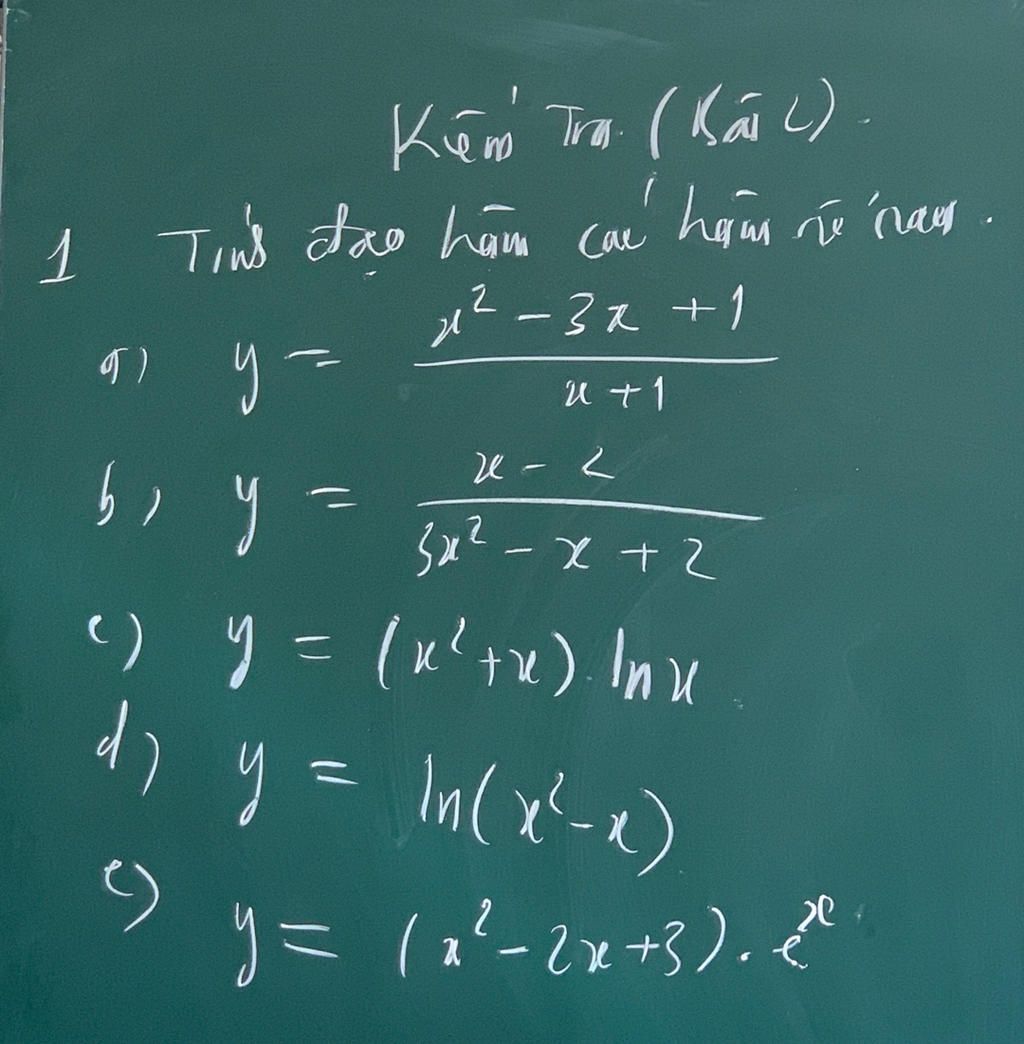 Kiểm Tra (Bài 2).
1 Tính đạo hàm các hàm số sau.
a) y = (x² - 3x + 1) / (x + 1)
b) y = (x - 2) / (3x² - x + 2)
c) y = (x² + x) . ln x
d) y = ln(x² - x)
e) y = (x² - 2x + 3) . eˣ